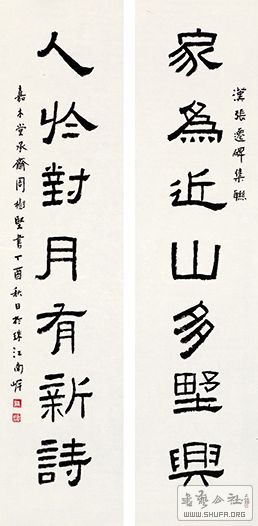 漢張遷碑集聯
家為近山多野興
人於對月有新詩
嘉木堂承齋周樹堅書丁酉秋日於珠江南岸
书艺公社
WWW.SHUFA.ORG